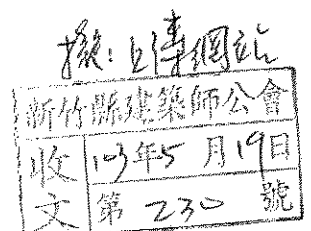 擬:上傳網站
新竹縣建築師公會
收文
103年5月19日
第230號